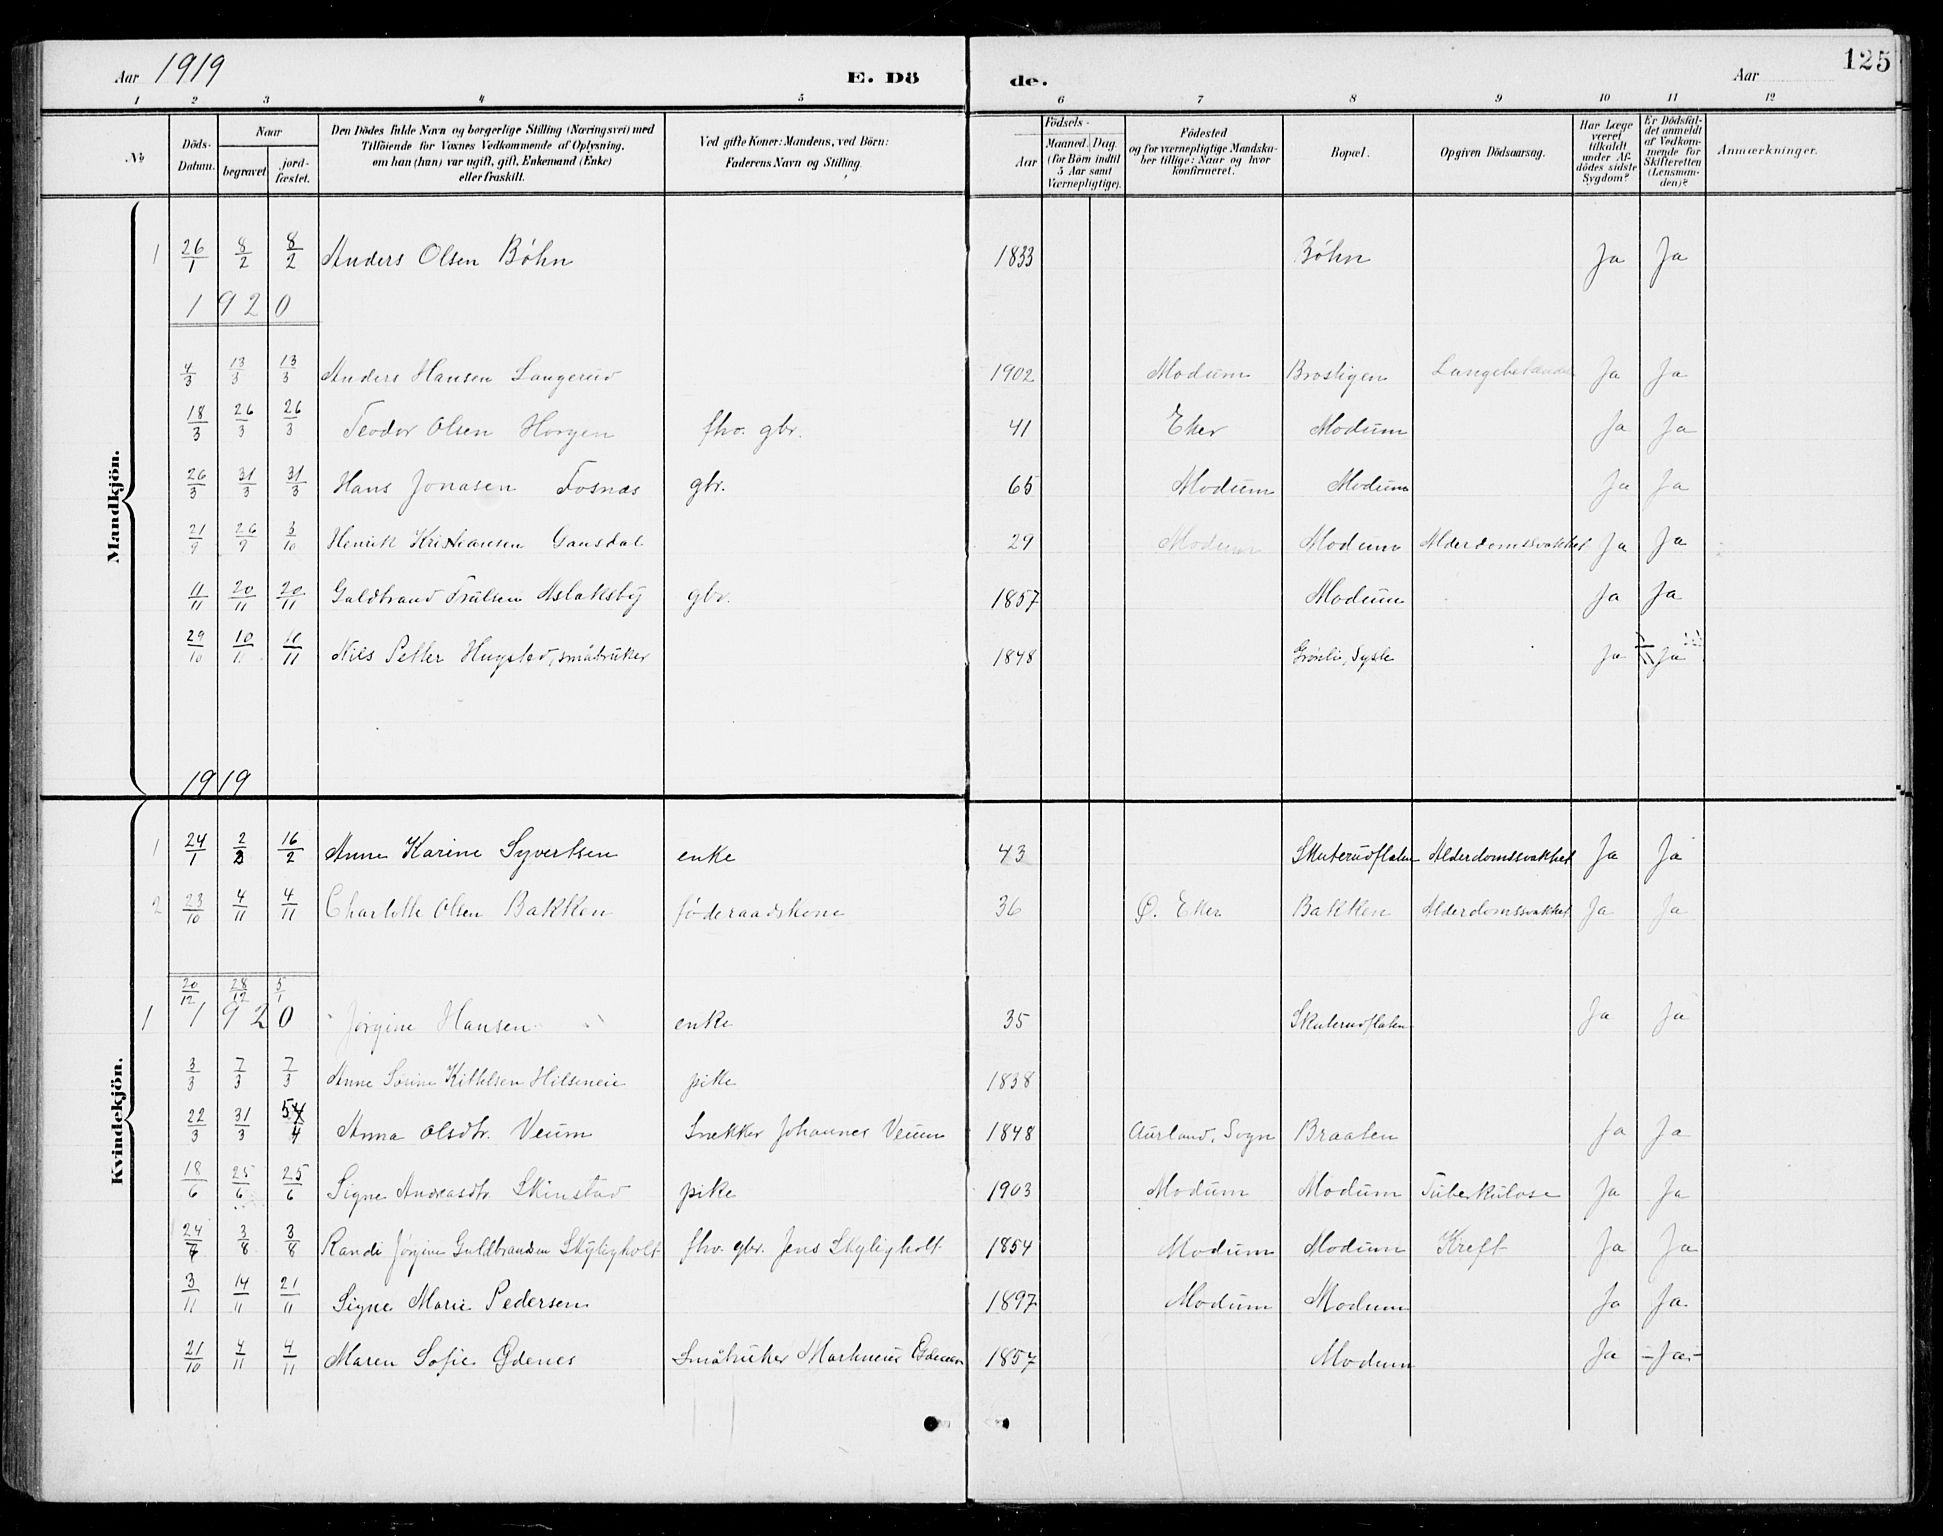 Aar 1919 E. Dö de. Aar 125
1 2 3 4 5 6 7 8 9 10 11 12
No
Döds-Datum.
Naar
begravet
jord-fæstet.
Den Dödes fulde Navn og borgerlige Stilling (Næringsvei) med
Tilföiende for Voxnes Vedkommende af Oplysning,
om han (hun) var ugift, gift, Enkemand (Enke)
eller fraskilt.
Ved gifte Koner: Mandens, ved Børn:
Faderens Navn og Stilling.
Födsels-
Aar
Maaned. Dag.
(for Börn indtil
5 Aar samt
Værnepligtige).
Födested
og for værnepligtige Mandska-
ber tillige: Naar og hvor
konfirmeret.
Bopæl.
Opgiven Dödsaarsag.
Har Læge
været
tilkaldt
under Af-
dödes sidste
Sygdom?
Er Dödsfal-
det anmeldt
af Vedkom-
mende for
Skifteretten
(Lensman-
den)?
Anmærkninger.
Mandkjön.
1 26/1 8/2 8/2 Anders Olsen Böhn 1833 Böhn Ja Ja
1920
4/3 13/3 13/3 Anders Hansen Langerud 1902 Modum Brostigen Ja Ja
18/3 26/3 26/3 Teodor Olsen Horgen fhv. gbr. 41 Eker Modum Ja Ja
26/3 31/3 31/3 Hans Jonasen Fosnæs gbr. 65 Modum Modum Ja Ja
21/9 26/9 3/10 Henrik Kristiansen Gansdal 29 Modum Modum Alderdomssvakhet Ja Ja
11/11 20/11 20/11 Guldbrand Trulsen Aslaksby gbr. 1857 Modum Ja Ja
29/10 10/11 10/11 Nils Petter Hugsted, småbruker 1848 Grönli, Sysle Ja Ja
1919
Kvindekjön.
1 24/1 2/2 16/2 Anne Karine Syvertsen enke 43 Skuterudflaten Alderdomssvakhet Ja Ja
2 23/10 4/11 4/11 Charlotte Olsen Bakken föderaadskone 36 Ø. Eker Bakken Alderdomssvakhet Ja Ja
20/12 28/12 5/1
1 1920 Jørgine Hansen enke 35 Skuterudflaten Ja Ja
3/3 7/3 7/3 Anne Sorine Kittelsen Hilseneie pike 1838
22/3 31/3 /4 Anna Olsdtr. Veum Snekker Johannes Veum 1848 Aurland, Sogn Braaten Ja Ja
18/6 25/6 25/6 Signe Andreasdtr. Skinstad pike 1903 Modum Modum Tuberkulose Ja Ja
24/ 3/8 3/8 Randi Jørgine Guldbrandsen Skyligholt fhv. gbr. Jens Skyligholt 1854 Modum Modum Kreft Ja Ja
3/11 14/11 21/11 Signe Marie Pedersen 1897 Modum Modum Ja Ja
21/10 4/11 4/11 Maren Sofie Ødenes Småbruker 1857 Modum Ja -Ja-